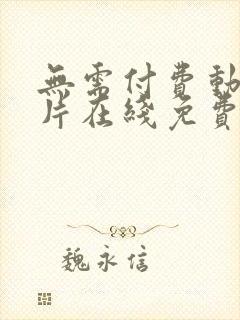 無需付費動
片在綫免費
魏永信